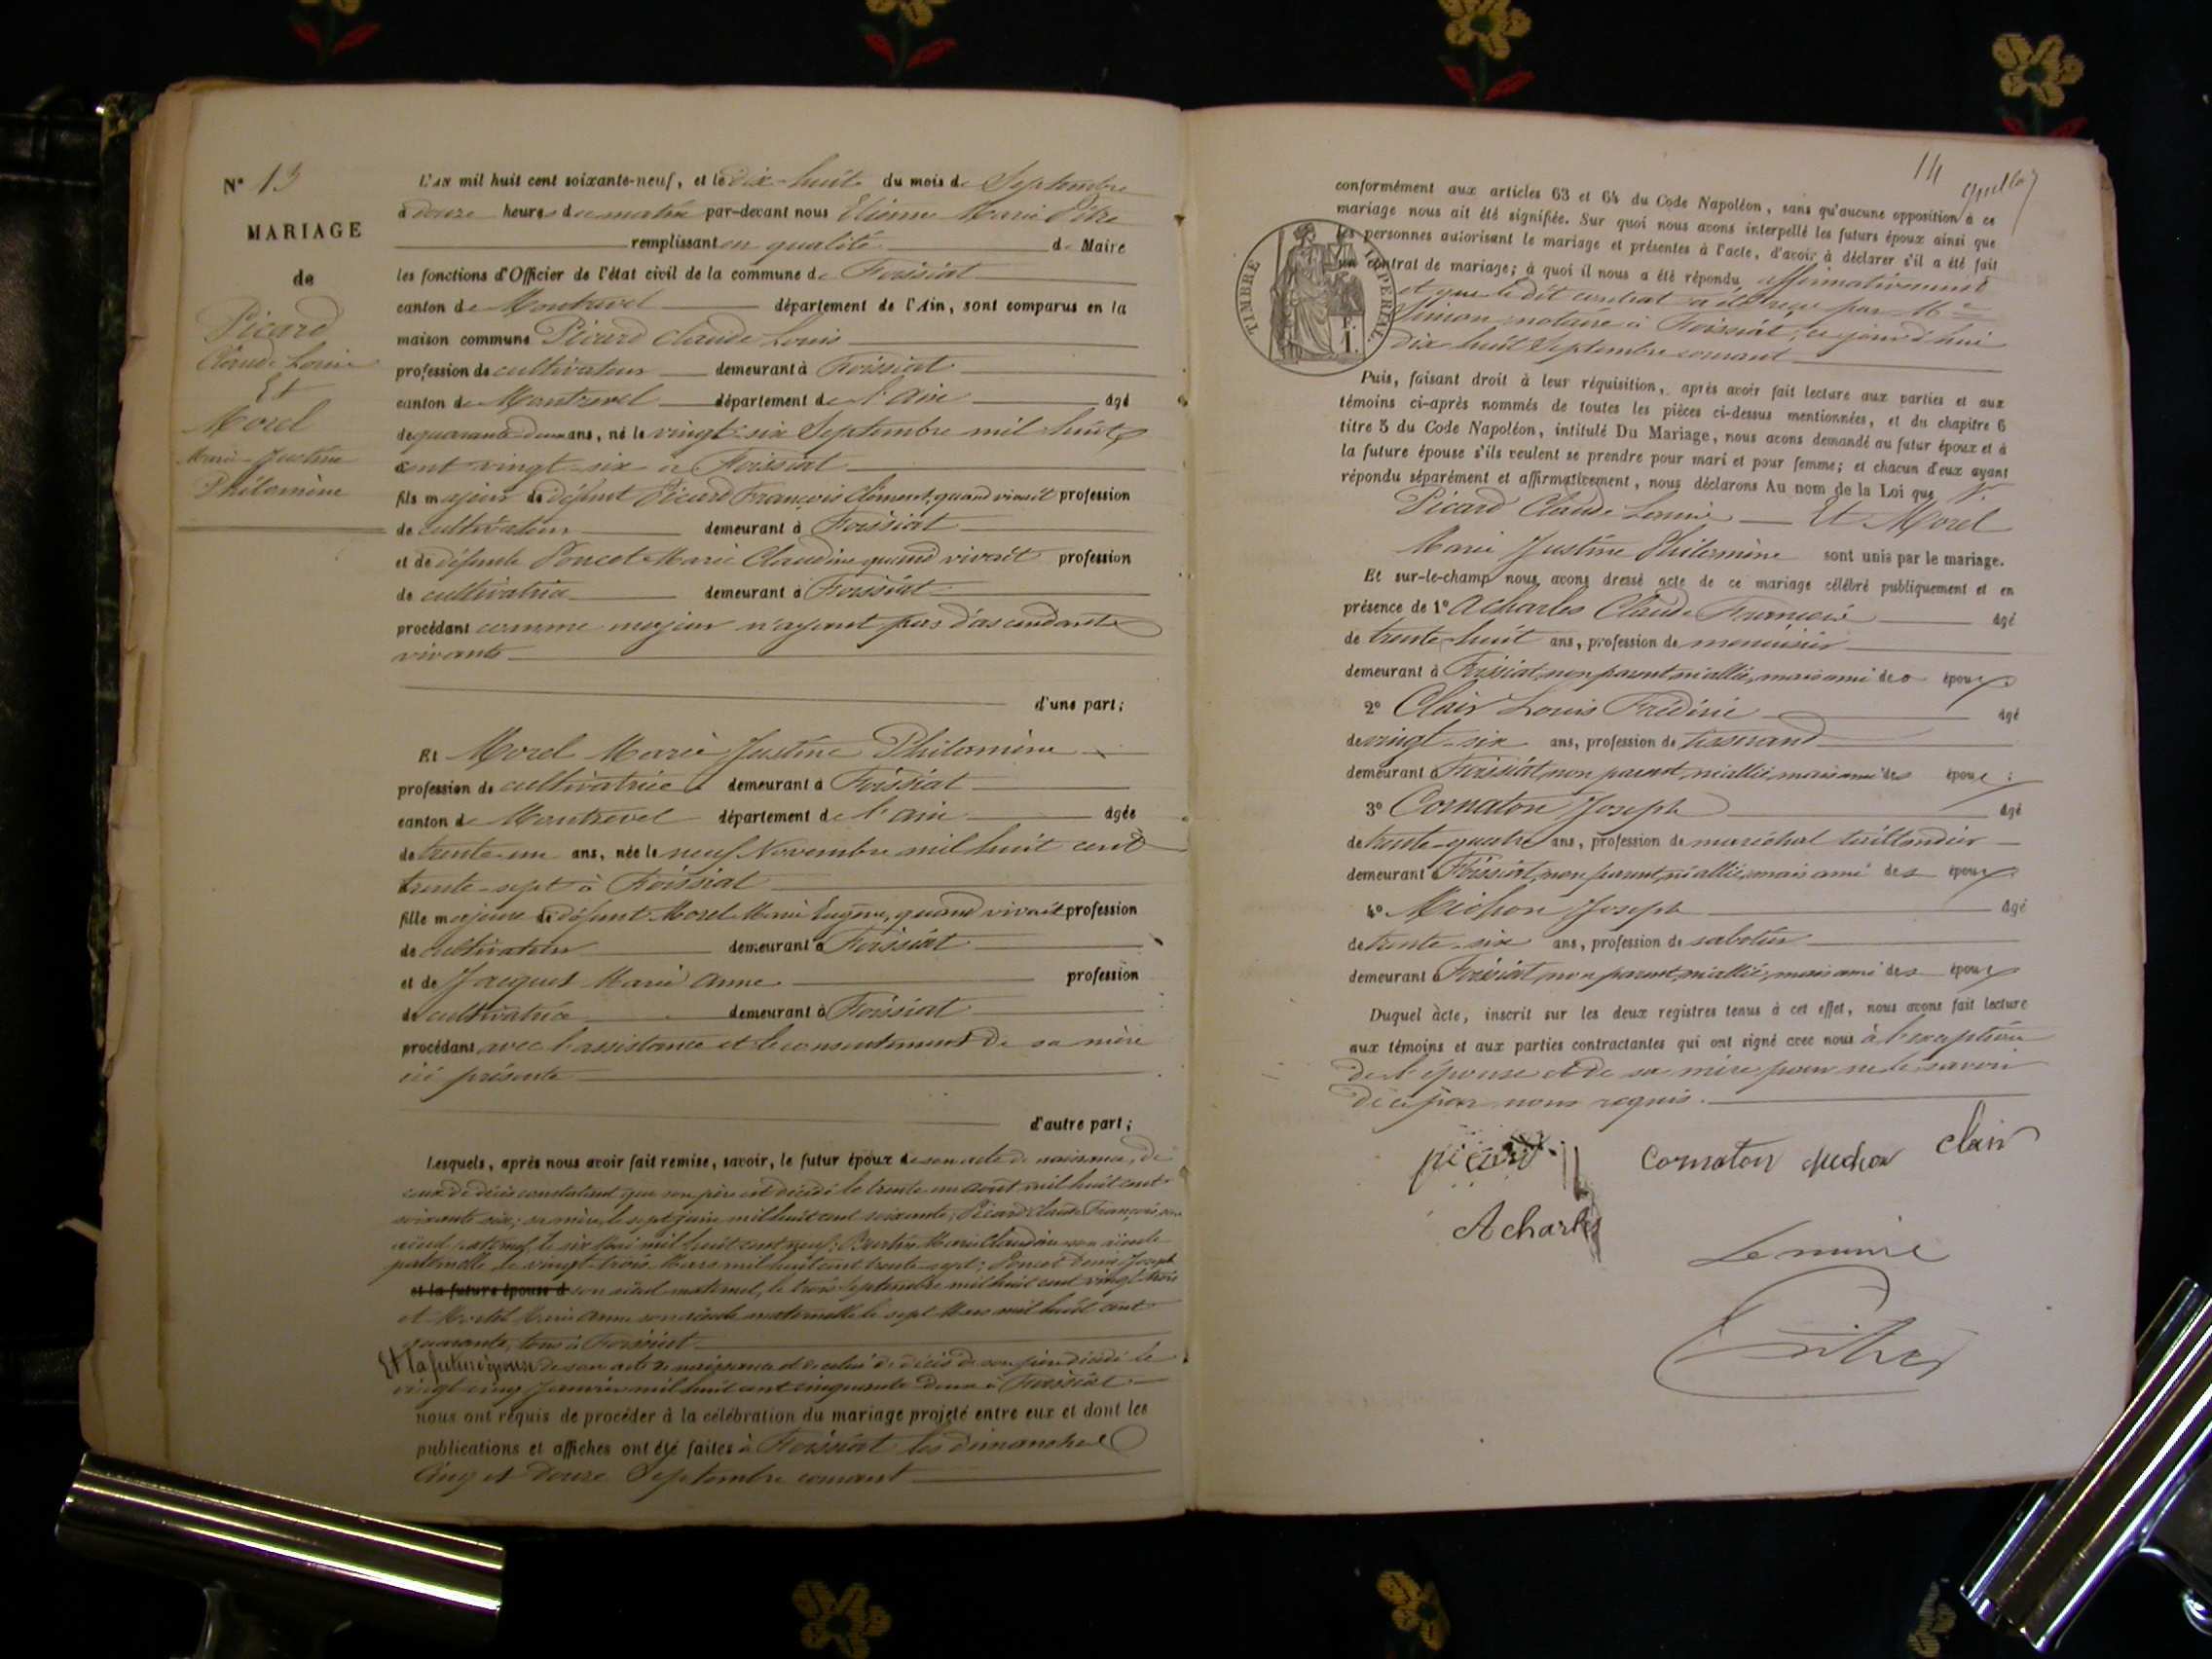 N° 13
MARIAGE
de
Picard
Claude Louis
Et
Morel
Marie-Justine
Philomène
L'an mil huit cent soixante-neuf, et le dix-huit du mois de Septembre
à douze heures du matin par-devant nous Etienne Marie Pitre
remplissant en qualité de Maire
les fonctions d'Officier de l'état civil de la commune de Foissiat
canton de Montrevel département de l'Ain, sont comparus en la
maison commune Picard Claude Louis
profession de cultivateur demeurant à Foissiat
canton de Montrevel département de l'Ain âgé
de quarante deux ans, né le vingt-six Septembre mil huit
cent vingt-six à Foissiat
fils majeur de défunt Picard François Clément, quand vivait profession
de cultivateur demeurant à Foissiat
et de défunte Poncet Marie Claudine quand vivait profession
de cultivatrice demeurant à Foissiat
procédant comme majeur n'ayant pas d'ascendants
vivants
d'une part;
Et Morel Marie Justine Philomène
profession de cultivatrice demeurant à Foissiat
canton de Montrevel département de l'ain âgée
de trente-un ans, née le neuf Novembre mil huit cent
trente-sept à Foissiat
fille majeure de défunt Morel Marie Eugène, quand vivait profession
de cultivateur demeurant à Foissiat
et de Jacquet Marie Anne profession
de cultivatrice demeurant à Foissiat
procédant avec l'assistance et le consentement de sa mère
ici présente
d'autre part;
Lesquels, après nous avoir fait remise, savoir, le futur époux de son acte de naissance, de
ceux de décès constatant que son père est décédé le trente un août mil huit cent
soixante six; sa mère, le sept juin mil huit cent soixante; Picard Claude François, son
aïeul paternel, le six Mai mil huit cent neuf; Marie Claudine son aïeule
paternelle le vingt-trois Mars mil huit cent trente-sept; Poncet Denis Joseph
et la future épouse d son aïeul maternel, le trois Septembre mil huit cent vingt trois
et Marie Anne son aïeule maternelle le sept Mars mil huit cent
quarante, tous à Foissiat
Et la future épouse de son acte de naissance et de celui de décès de son père décédé le
vingt-cinq Janvier mil huit cent cinquante deux à Foissiat
nous ont requis de procéder à la célébration du mariage projeté entre eux et dont les
publications et affiches ont été faites à Foissiat les dimanches
Cinq et Douze Septembre courant
14
conformément aux articles 63 et 64 du Code Napoléon, sans qu'aucune opposition à ce
mariage nous ait été signifiée. Sur quoi nous avons interpellé les futurs époux ainsi que
les personnes autorisant le mariage et présentes à l'acte, d'avoir à déclarer s'il a été fait
un contrat de mariage; à quoi il nous a été répondu affirmativement
et que le dit contrat a été reçu par Me
Simon notaire à Foissiat, le jour d'hui
dix huit Septembre courant
TIMBRE IMPERIAL
F.
1.
Puis, faisant droit à leur réquisition, après avoir fait lecture aux parties et aux
témoins ci-après nommés de toutes les pièces ci-dessus mentionnées, et du chapitre 6
titre 5 du Code Napoléon, intitulé Du Mariage, nous avons demandé au futur époux et à
la future épouse s'ils veulent se prendre pour mari et pour femme; et chacun d'eux ayant
répondu séparément et affirmativement, nous déclarons Au nom de la Loi que
Picard Claude Louis Et Morel
Marie Justine Philomène sont unis par le mariage.
Et sur-le-champ nous avons dressé acte de ce mariage célébré publiquement et en
présence de 1° Acharles Claude François âgé
de trente-huit ans, profession de menuisier
demeurant à Foissiat, non parent ni allié, mais ami des époux
2° Clair Louis Frédéric âgé
de vingt-six ans, profession de tisserand
demeurant à Foissiat, non parent, ni allié, mais ami des époux;
3° Cornaton Joseph âgé
de trente-quatre ans, profession de maréchal taillandier
demeurant à Foissiat, non parent, ni allié, mais ami des époux
4° Michon Joseph âgé
de trente-six ans, profession de sabotier
demeurant à Foissiat, non parent, ni allié, mais ami des époux
Duquel acte, inscrit sur les deux registres tenus à cet effet, nous avons fait lecture
aux témoins et aux parties contractantes qui ont signé avec nous à l'exception
de l'épouse et de sa mère pour ne le savoir
de ce par nous requis.
picard Cornaton Michon Clair
Acharles
Le maire
Pitre